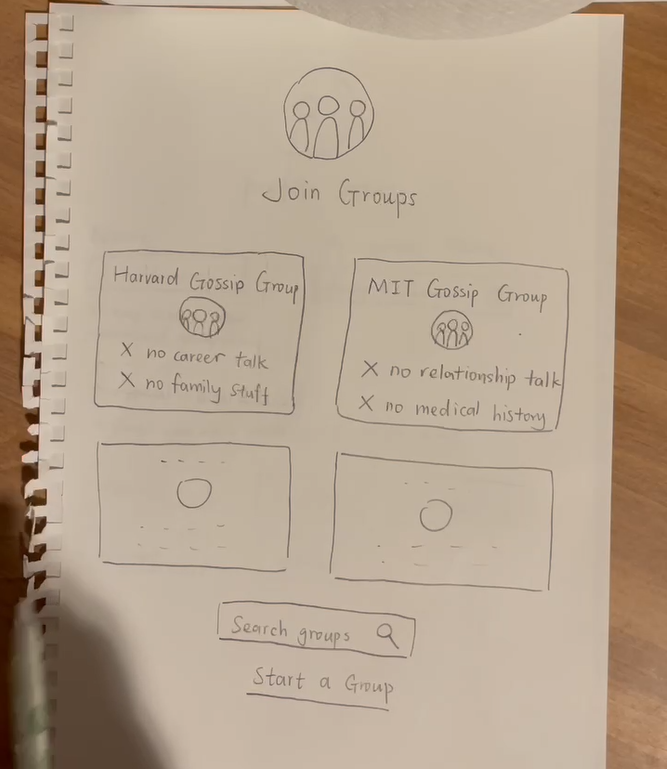 Join Groups
Harvard Gossip Group
X no career talk
X no family stuff
MIT Gossip Group
X no relationship talk
X no medical history
Search groups
Start a Group